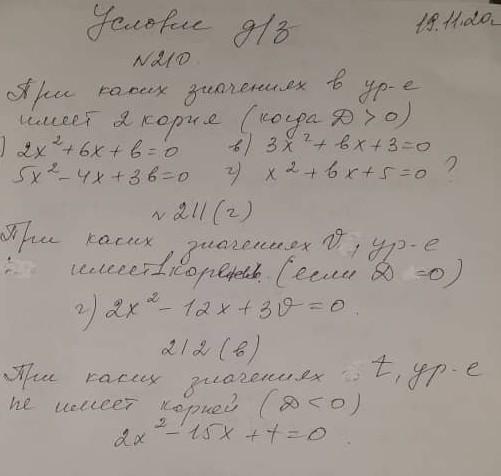 Условие д/з 19.11.20г
N210.
При каких значениях в ур-е
имеет 2 корня (когда D > 0)
) 2x² + 6x + в = 0 в) 3x² + вx + 3 = 0
5x² - 4x + 3в = 0 г) x² + вx + 5 = 0 ?
N211(г)
При каких значениях v, ур-е
имеет 1 корень. (если D = 0)
г) 2x² - 12x + 3v = 0.
212(в)
При каких значениях t, ур-е
не имеет корней (D < 0)
2x² - 15x + t = 0.